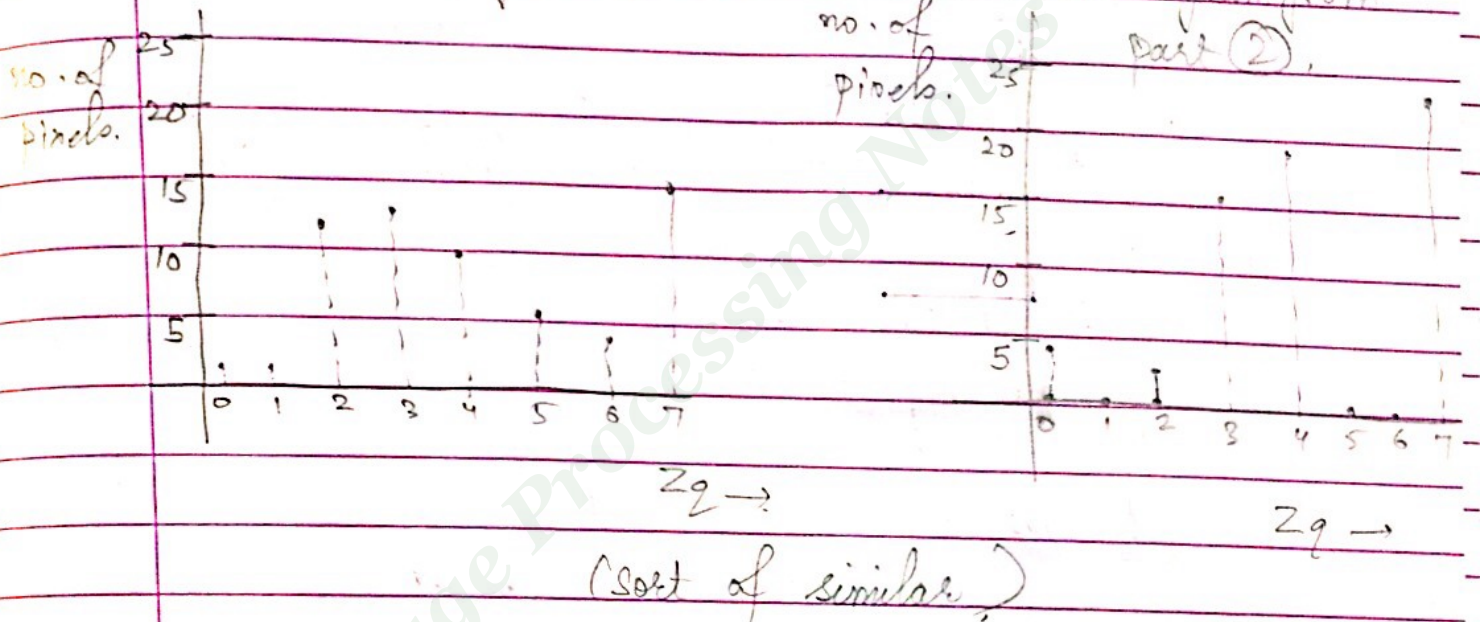 no. of
pixels.
25
20
15
10
5
0 1 2 3 4 5 6 7
Zq →
no. of
pixels.
part ②.
25
20
15
10
5
0 1 2 3 4 5 6 7
Zq →
(Sort of similar)
Processing Notes